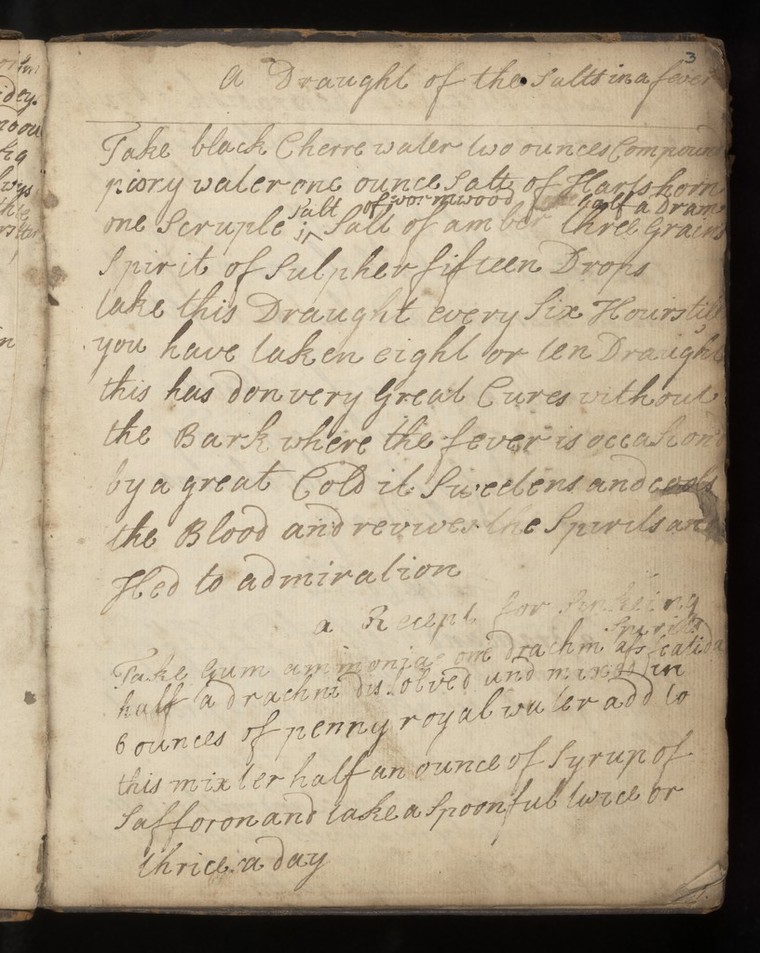 3
a Draught of the Salts in a fever
Take black Cherre water two ounces Compound
piory water one ounce Salts of Hartshorn
Salt of wormwood half a Dram
one Scruple Salt of amber three Grains
Spirit of Sulpher fifteen Drops
take this Draught every Six Hours till
you have taken eight or ten Draught
this has don very Great Cures without
the Bark where the fever is occason'd
by a great Cold it Sweetens and cools
the Blood and revives the Spirits and
Hed to admiration
a Recept for Sinkeing
Spirits
Take Gum ammonia one drachm assfatida
half a drachm dissolved and mixed in
6 ounces of penny royal water add to
this mixter half an ounce of Syrup of
Safforon and take a Spoonful twice or
thrice a day